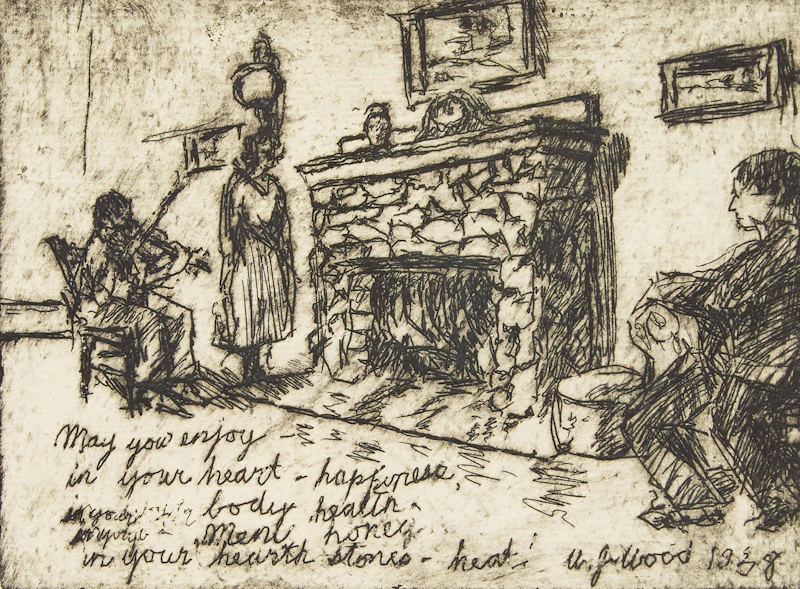 May you enjoy -
in your heart - happiness,
in your body health -
in your
in your hearth stones - heat! W. J. Wood 1938